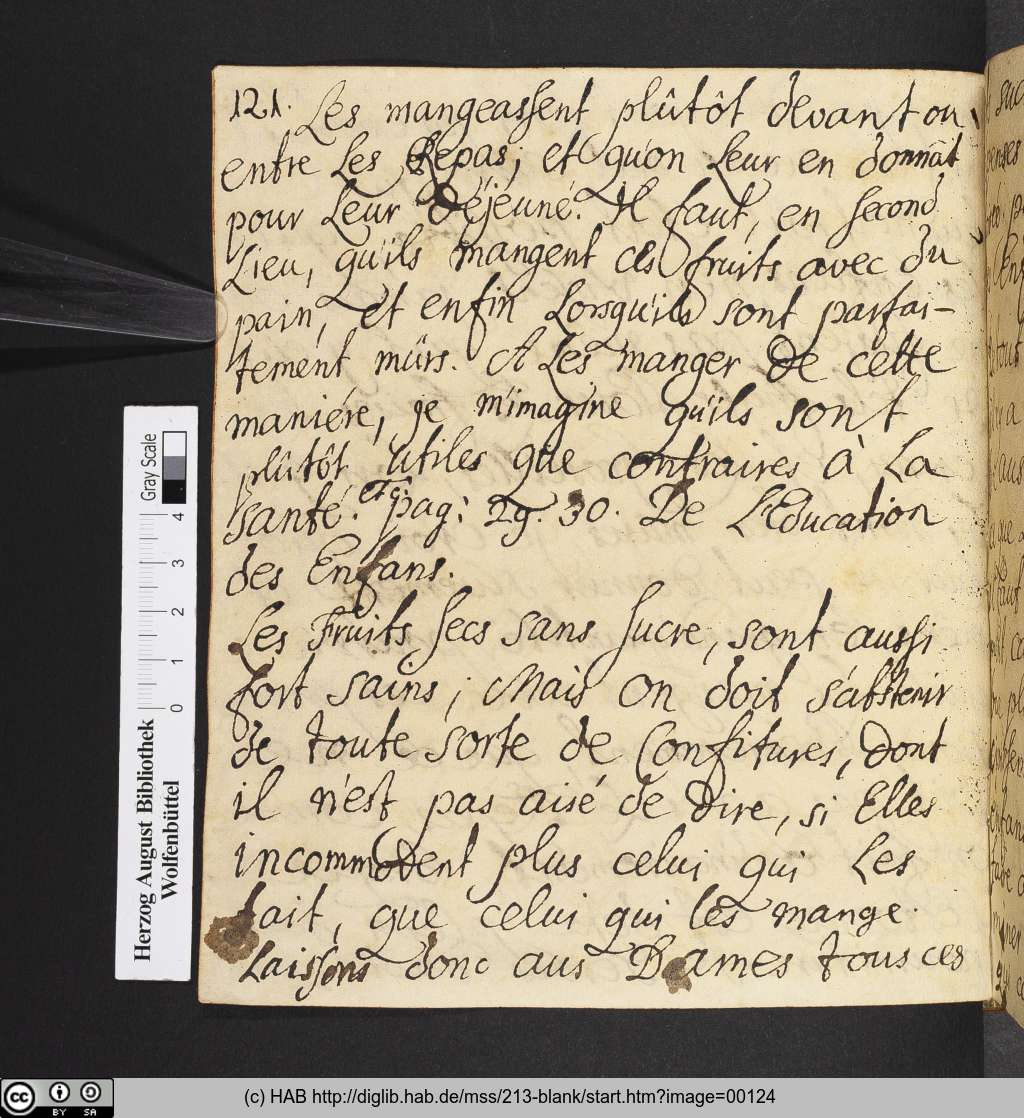 121. Les mangeassent plûtôt devant ou
entre Les Repas; et qu'on Leur en donnât
pour Leur Déjeuné. Il faut, en second
Lieu, qu'ils mangent ces fruits avec du
pain, et enfin Lorsqu'ils sont parfai-
tement mûrs. A Les manger de cette
maniére, je m'imagine qu'ils sont
plûtôt utiles que contraires à La
santé. etc: pag: 29. 30. De L'Education
des Enfans.
Les Fruits secs sans sucre, sont aussi
fort sains; Mais on doit s'abstenir
de toute sorte de Confitures, dont
il n'est pas aisé de dire, si Elles
incommodent plus celui qui Les
fait, que celui qui les mange.
Laissons donc aus Dames tous ces
Gray Scale
4
3
2
1
0
Herzog August Bibliothek
Wolfenbüttel
cc BY SA
(c) HAB http://diglib.hab.de/mss/213-blank/start.htm?image=00124